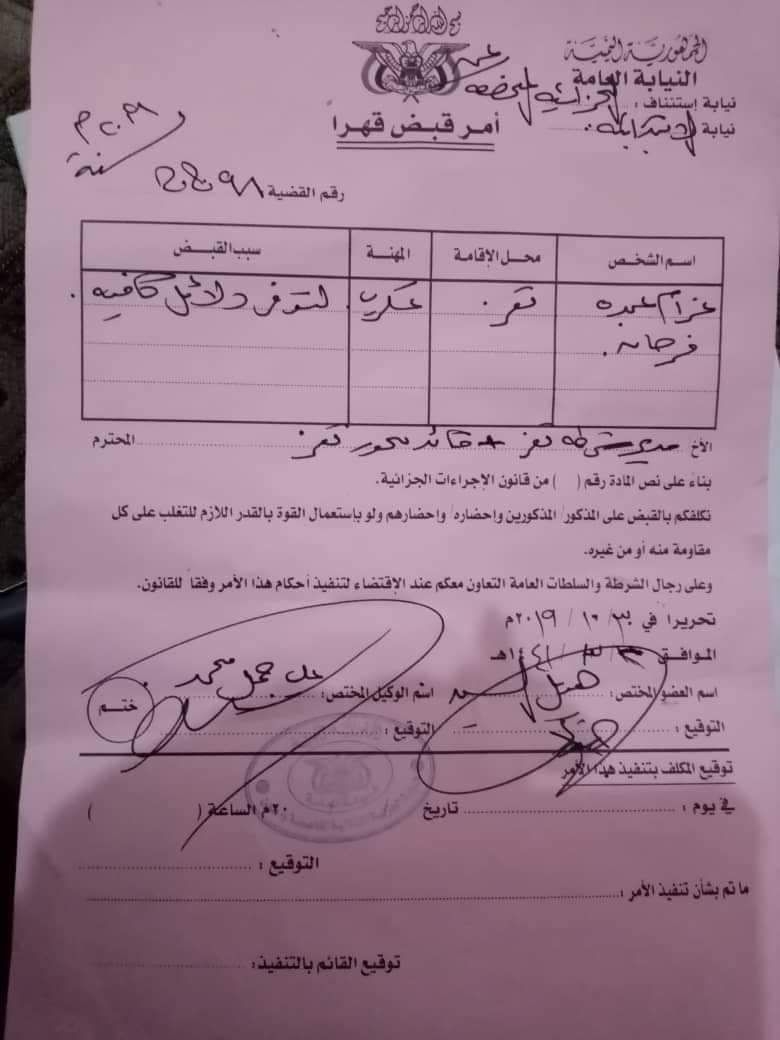 بسم الله الرحمن الرحيم
الجمهورية اليمنية
النيابة العامة
نيابة إستئناف : الجزائية المتخصصة عدن
نيابة الابتدائية
أمر قبض قهرا
رقم القضية
سنة
اسم الشخص محل الإقامة المهنة سبب القبض
عزام عبده تعز . عسكري . لتوفر دلائل كافيه .
فرحان .
الأخ مدير شرطه تعز + قائد محور تعز المحترم
بناءً على نص المادة رقم ( ) من قانون الإجراءات الجزائية.
نكلفكم بالقبض على المذكور/ المذكورين وإحضاره/ وإحضارهم ولو بإستعمال القوة بالقدر اللازم للتغلب على كل
مقاومة منه أو من غيره.
وعلى رجال الشرطة والسلطات العامة التعاون معكم عند الإقتضاء لتنفيذ أحكام هذا الأمر وفقاً للقانون.
تحريراً في ٣٠ / ١٠ / ٢٠١٩م
الموافق / / ١٤٤١هـ
اسم العضو المختص: اسم الوكيل المختص:
ختم
التوقيع : التوقيع :
توقيع المكلف بتنفيذ هذا الأمر
في يوم : تاريخ ٢٠م الساعة ( )
التوقيع :
ما تم بشأن تنفيذ الأمر :
توقيع القائم بالتنفيذ: